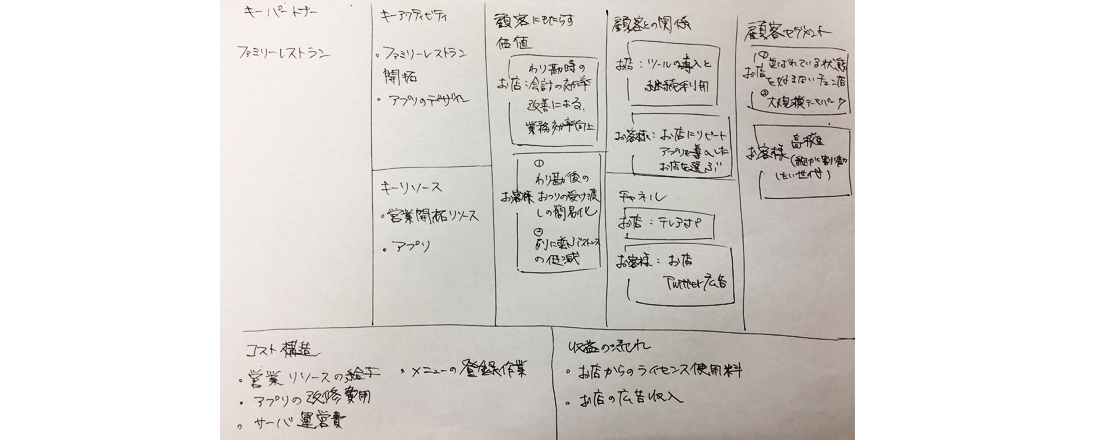 キーパートナー
ファミリーレストラン
キーアクティビティ
・ファミリーレストラン
開拓
・アプリのデザイン
キーリソース
・営業開拓リソース
・アプリ
顧客にもたらす
価値
わり勘時の
お店:会計の効率
改善による、
業務効率向上
①
わり勘後の
お客様 おつりの受け渡
しの簡易化
②
列に並ぶストレス
の低減
顧客との関係
お店:ツールの導入と
継続利用
お客様:お店にリピート
アプリを導入した
お店を選ぶ
チャネル
お店:テレアポ
お客様:お店
Twitter広告
顧客セグメント
①並ばれている状態
お店 を好まないチェーン店
②大規模テーマパーク
高校生
お客様 (細かく割り勘
したい世代)
コスト構造
・営業リソースの給与
・メニューの登録作業
・アプリの改修費用
・サーバ運営費
収益の流れ
・お店からのライセンス使用料
・お店の広告収入